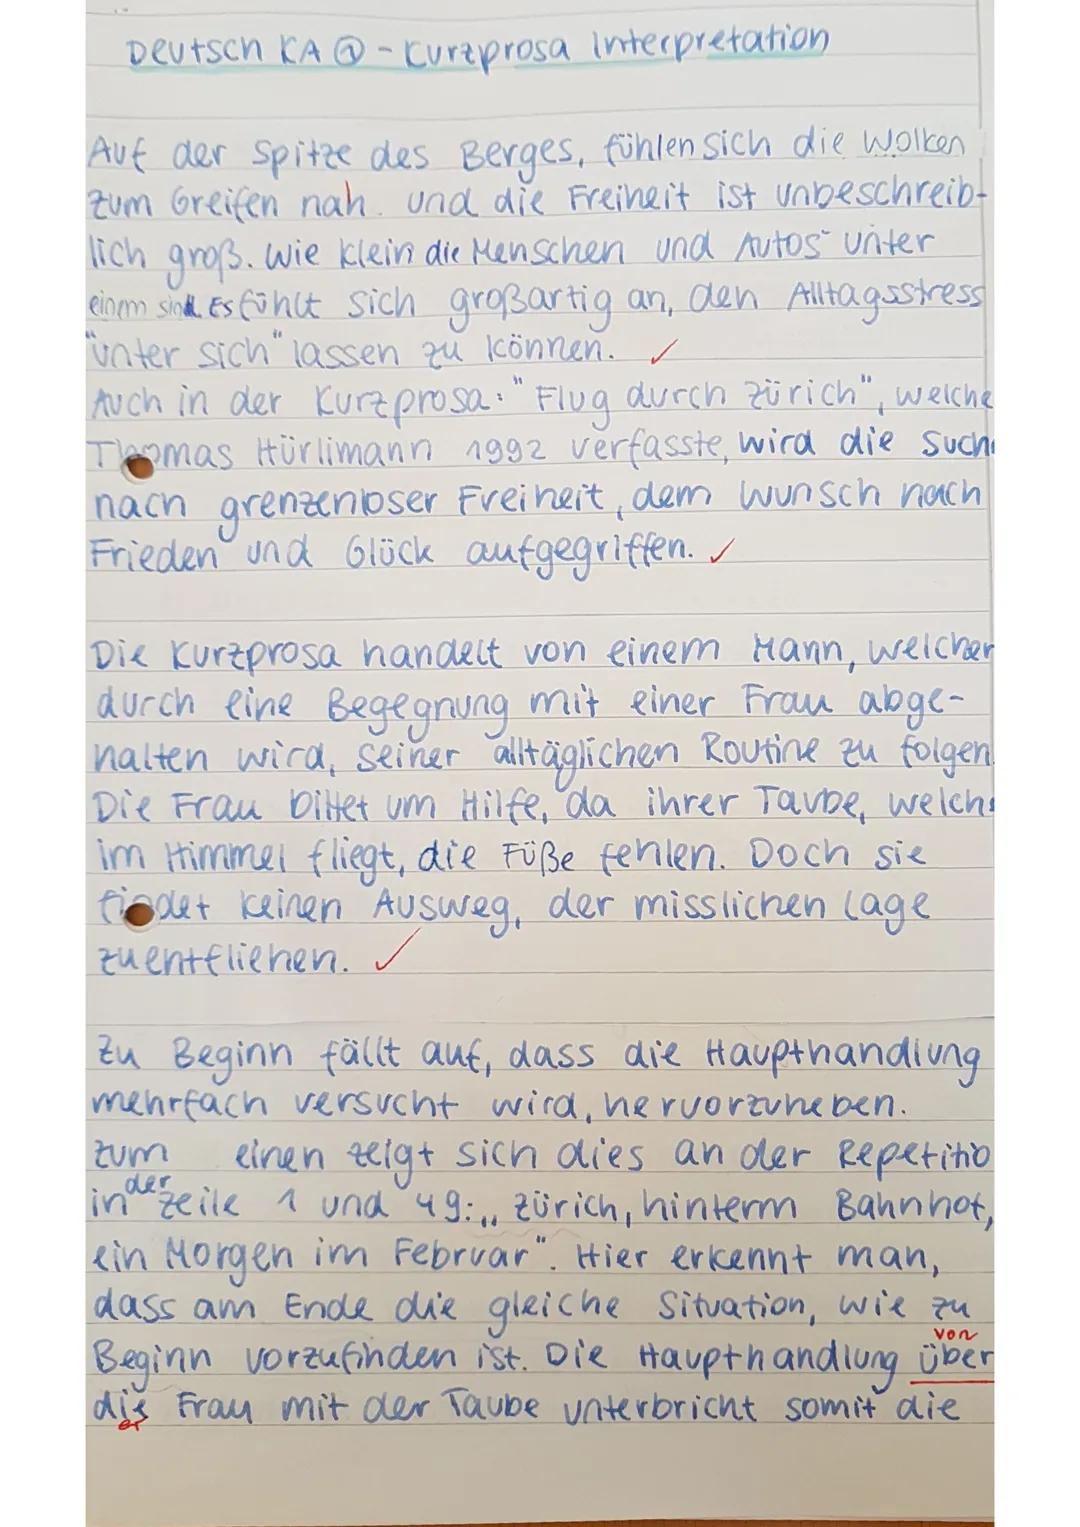 Deutsch KA ① - Kurzprosa Interpretation
Auf der Spitze des Berges, fühlen sich die Wolken
zum Greifen nah. und die Freiheit ist unbeschreib-
lich groß. Wie klein die Menschen und Autos unter
einem sind. Es fühlt sich großartig an, den Alltagsstress
"unter sich" lassen zu können. ✓
Auch in der Kurzprosa: "Flug durch Zürich", welche
Thomas Hürlimann 1992 verfasste, wird die Suche
nach grenzenloser Freiheit, dem Wunsch nach
Frieden und Glück aufgegriffen. ✓
Die Kurzprosa handelt von einem Mann, welcher
durch eine Begegnung mit einer Frau abge-
halten wird, seiner alltäglichen Routine zu folgen.
Die Frau bittet um Hilfe, da ihrer Taube, welche
im Himmel fliegt, die Füße fehlen. Doch sie
findet keinen Ausweg, der misslichen Lage
zuentfliehen. ✓
Zu Beginn fällt auf, dass die Haupthandlung
mehrfach versucht wird, hervorzuheben.
Zum einen zeigt sich dies an der Repetitio
in der Zeile 1 und 49: „Zürich, hinterm Bahnhof,
ein Morgen im Februar". Hier erkennt man,
dass am Ende die gleiche Situation, wie zu
Beginn vorzufinden ist. Die Haupthandlung über
von
die Frau mit der Taube unterbricht somit die
er